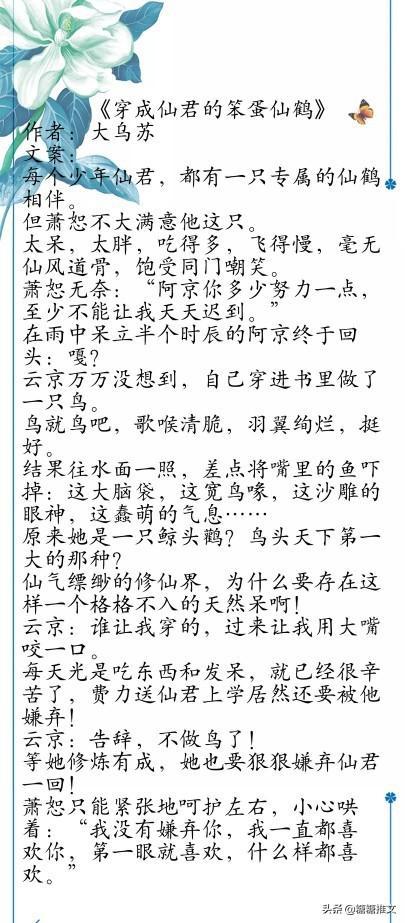 《穿成仙君的笨蛋仙鹤》
作者：大乌苏
文案：
每个少年仙君，都有一只专属的仙鹤
相伴。
但萧恕不大满意他这只。
太呆，太胖，吃得多，飞得慢，毫无
仙风道骨，饱受同门嘲笑。
萧恕无奈：“阿京你多少努力一点，
至少不能让我天天迟到。”
在雨中呆立半个时辰的阿京终于回
头：嘎？
云京万万没想到，自己穿进书里做了
一只鸟。
鸟就鸟吧，歌喉清脆，羽翼绚烂，挺
好。
结果往水面一照，差点将嘴里的鱼吓
掉：这大脑袋，这宽鸟喙，这沙雕的
眼神，这蠢萌的气息……
原来她是一只鲸头鹳？鸟头天下第一
大的那种？
仙气缥缈的修仙界，为什么要存在这
样一个格格不入的天然呆啊！
云京：谁让我穿的，过来让我用大嘴
咬一口。
每天光是吃东西和发呆，就已经很辛
苦了，费力送仙君上学居然还要被他
嫌弃！
云京：告辞，不做鸟了！
等她修炼有成，她也要狠狠嫌弃仙君
一回！
萧恕只能紧张地呵护左右，小心哄
着：“我没有嫌弃你，我一直都喜
欢你，第一眼就喜欢，什么样都喜
欢。”
头条@糖糖推文